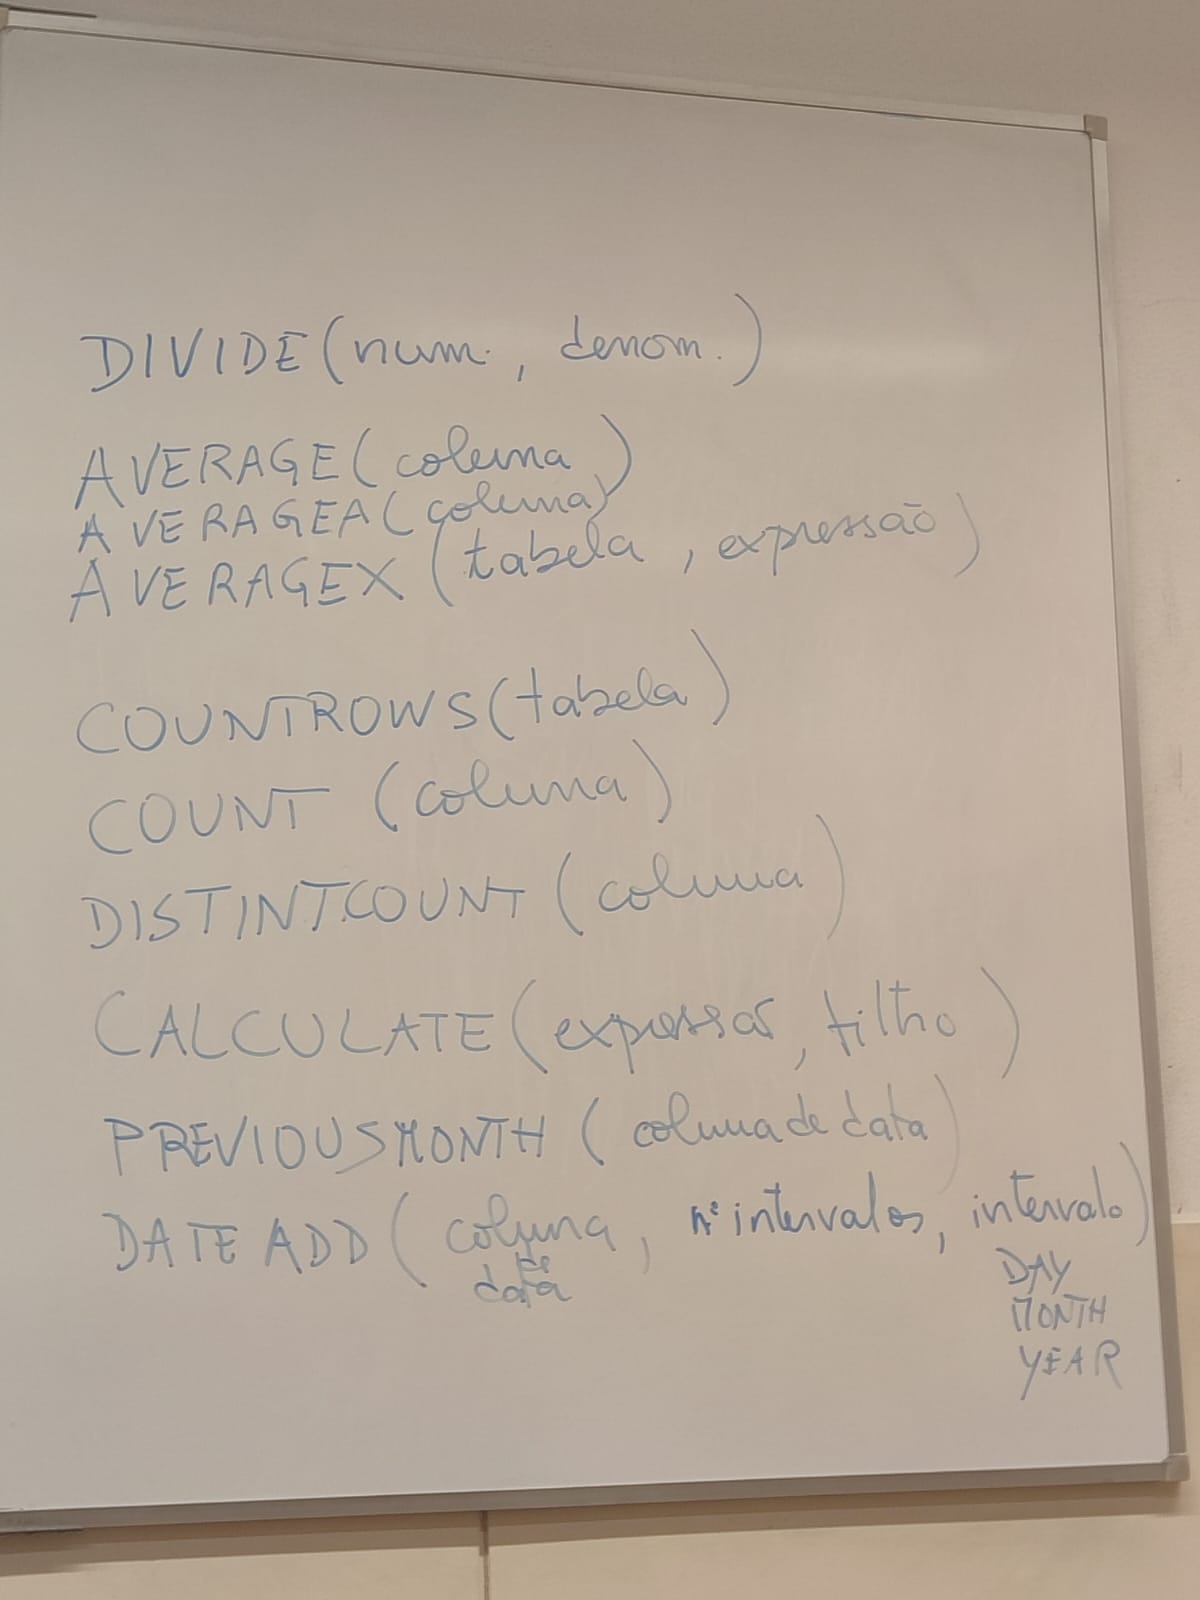 DIVIDE (num. , denom.)
AVERAGE (coluna)
AVERAGEA (coluna)
AVERAGEX (tabela , expressão)
COUNTROWS (tabela)
COUNT (coluna)
DISTINTCOUNT (coluna)
CALCULATE (expressão, filtro)
PREVIOUSMONTH (coluna de data)
DATE ADD (coluna de data, nº intervalos, intervalo)
DAY
MONTH
YEAR